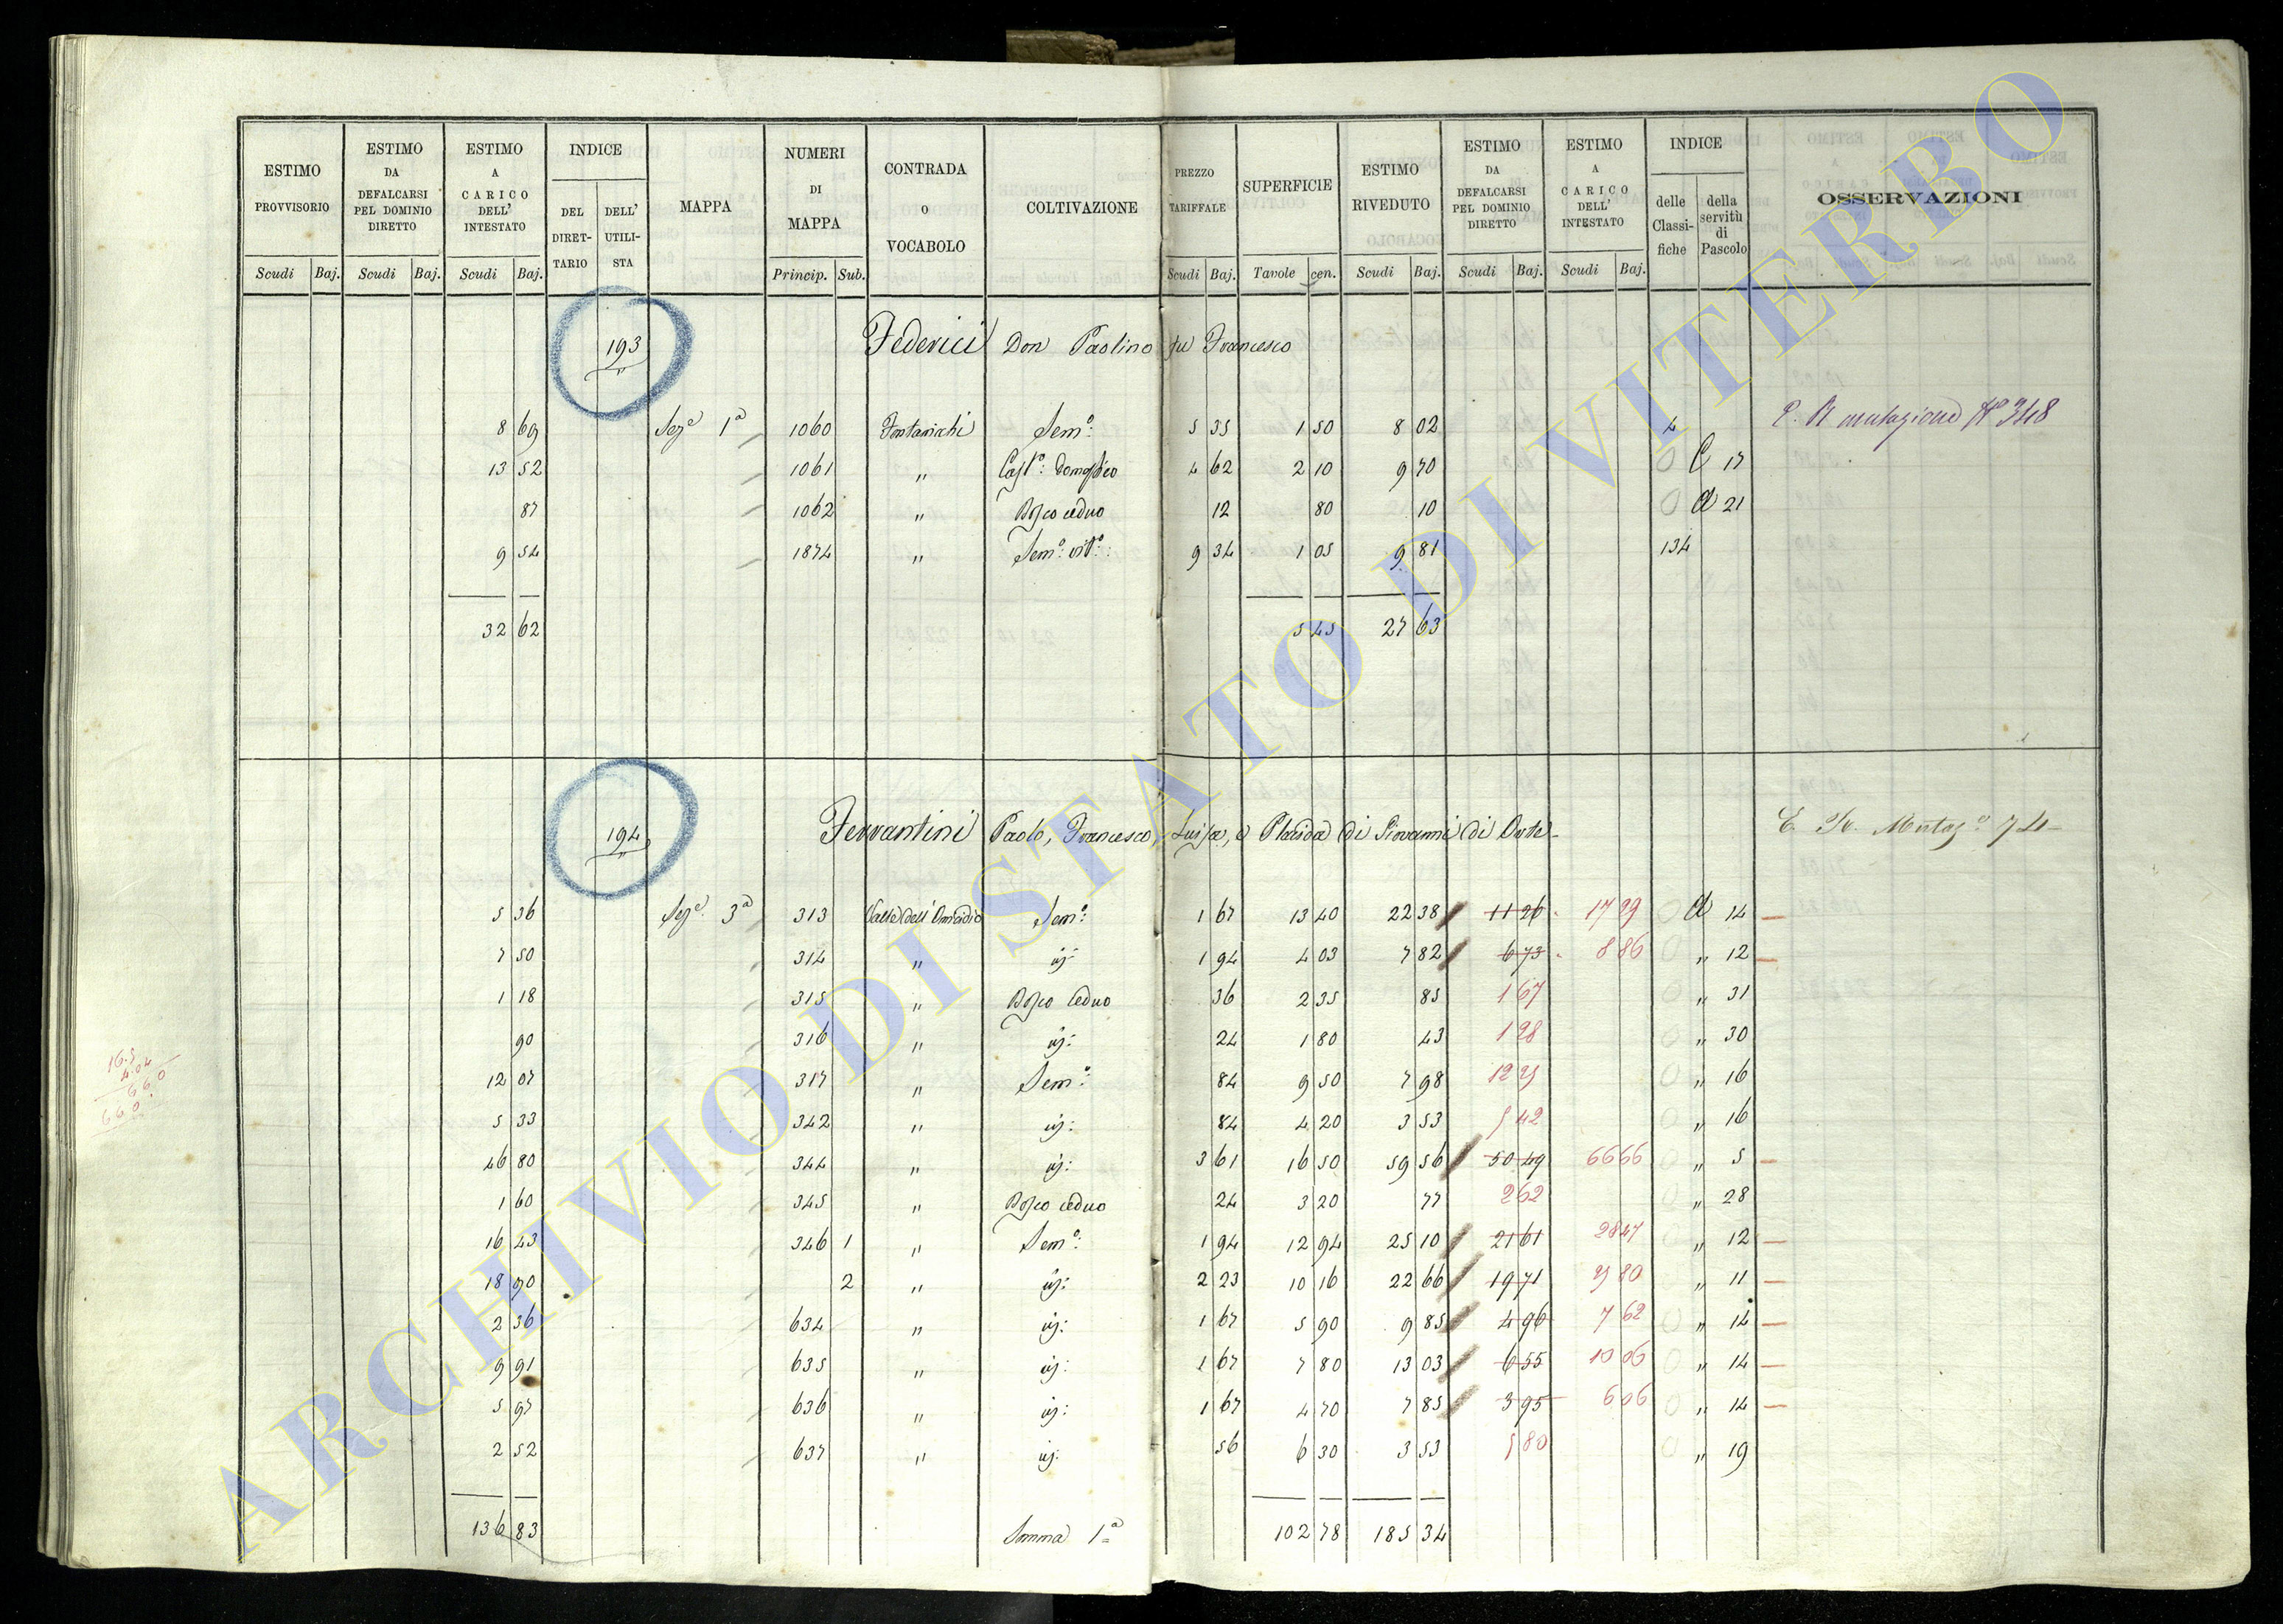 ESTIMO PROVVISORIO | ESTIMO DA DEFALCARSI PEL DOMINIO DIRETTO | ESTIMO A CARICO DELL' INTESTATO | INDICE | MAPPA | NUMERI DI MAPPA | CONTRADA O VOCABOLO | COLTIVAZIONE | PREZZO TARIFFALE | SUPERFICIE | ESTIMO RIVEDUTO | ESTIMO DA DEFALCARSI PEL DOMINIO DIRETTO | ESTIMO A CARICO DELL' INTESTATO | INDICE | OSSERVAZIONI
DEL DIRETTARIO | DELL' UTILISTA | delle Classifiche | della servitù di Pascolo
Scudi Baj. | Scudi Baj. | Scudi Baj. | Princip. Sub. | Scudi Baj. | Tavole cen. | Scudi Baj. | Scudi Baj. | Scudi Baj.
193 Federici Don Paolino fu Francesco
8 69 Seze 1a 1060 Semo: 5 35 1 50 8 02 4 mutazione No 348
13 52 1061 " Casto: Domestico 4 62 2 10 9 70 C 17
87 1062 " Bosco ceduo 12 80 10 a 21
9 54 1874 " Semo: vito: 9 34 1 05 9 81 134
32 62 5 45 27 63
194 Ferrantini Paolo, Francesco, Luisa, e Placida di Giovanni di Orte Mutazo 74
5 36 Seze 3a 313 Valle dell' Semo: 1 67 13 40 22 38 11 26 17 29 a 14
7 50 314 " id: 1 94 4 03 7 82 6 73 8 86 " 12
1 18 315 " Bosco ceduo 36 2 35 85 1 67 " 31
90 316 " id: 24 1 80 43 1 28 " 30
12 07 317 " Semo: 84 9 50 7 98 12 25 " 16
5 33 342 " id: 84 4 20 3 53 5 42 " 16
46 80 344 " id: 3 61 16 50 59 56 50 49 66 66 " 5
1 60 345 " Bosco ceduo 24 3 20 77 2 62 " 28
16 43 346 1 " Semo: 1 94 12 94 25 10 21 61 28 47 " 12
18 90 2 " id: 2 23 10 16 22 66 19 71 25 80 " 11
2 36 634 " id: 1 67 5 90 9 85 4 96 7 62 " 14
9 91 635 " id: 1 67 7 80 13 03 6 55 10 06 " 14
5 97 636 " id: 1 67 4 70 7 85 3 95 6 06 " 14
2 52 637 " id: 56 6 30 3 53 5 80 " 19
136 83 Somma 1a 102 78 185 34
ARCHIVIO DI STATO DI VITERBO